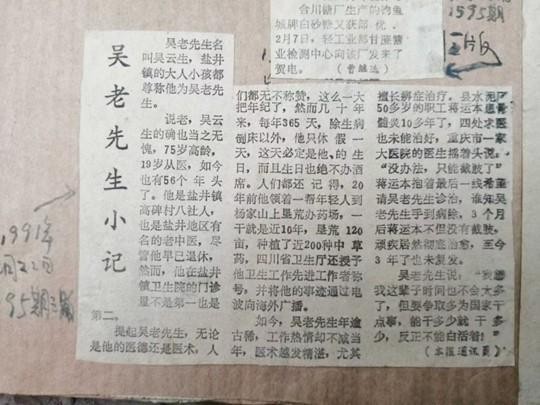 合川糖厂生产的钓鱼
城牌白砂糖又获部优．
2月7日，轻工业部甘蔗糖
业检测中心向该厂发来了
贺电。
1595期
版
吴老先生小记
吴老先生名
叫吴云生，盐井
镇的大人小孩都
尊称他为吴老先
生。
说老，吴云
生的确也当之无
愧，75岁高龄，
19岁从医，如今
也有56个年头
了。他是盐井镇
高碑村八社人，
也是盐井地区有
名的老中医，尽
管他早已退休，
然而，他在盐井
镇卫生院的门诊
量不是第一也是
第二。
提起吴老先生，无论
是他的医德还是医术，人
们都无不称赞，这么一大
把年纪了，然而几十年
来，每年365天，除生病
倒床以外，他只休假一
天，这天必定是他的生
日，而且生日也绝不办酒
席。人们都还记得，20
年前他领着一帮年轻人到
杨家山上垦荒办药场，一
干就是近10年，垦荒120
亩，种植了近200种中草
药，四川省卫生厅还授予
他卫生工作先进工作者称
号，并将他的事迹通过电
波向海外广播。
如今，吴老先生年逾
古稀，工作热情却不减当
年，医术越发精湛，尤其
擅长辨症治疗。县水
50多岁的职工蒋运本患骨
髓炎10多年了，四处求医
也未能治好，重庆市一家
大医院的医生摇着头说：
“没办法，只能截肢了”
蒋运本抱着最后一线希望
请吴老先生诊治，谁知吴
老先生手到病除，3个月
后蒋运本不但没有截肢，
顽疾居然彻底治愈，至今
3年了也未复发。
吴老先生说：“我想
我这辈子时间也不会太多
了，但要争取多为国家干
点事，能干多少就干多
少，反正不能白活着！”
（本报通讯员）
1991年
月22日
95期三版